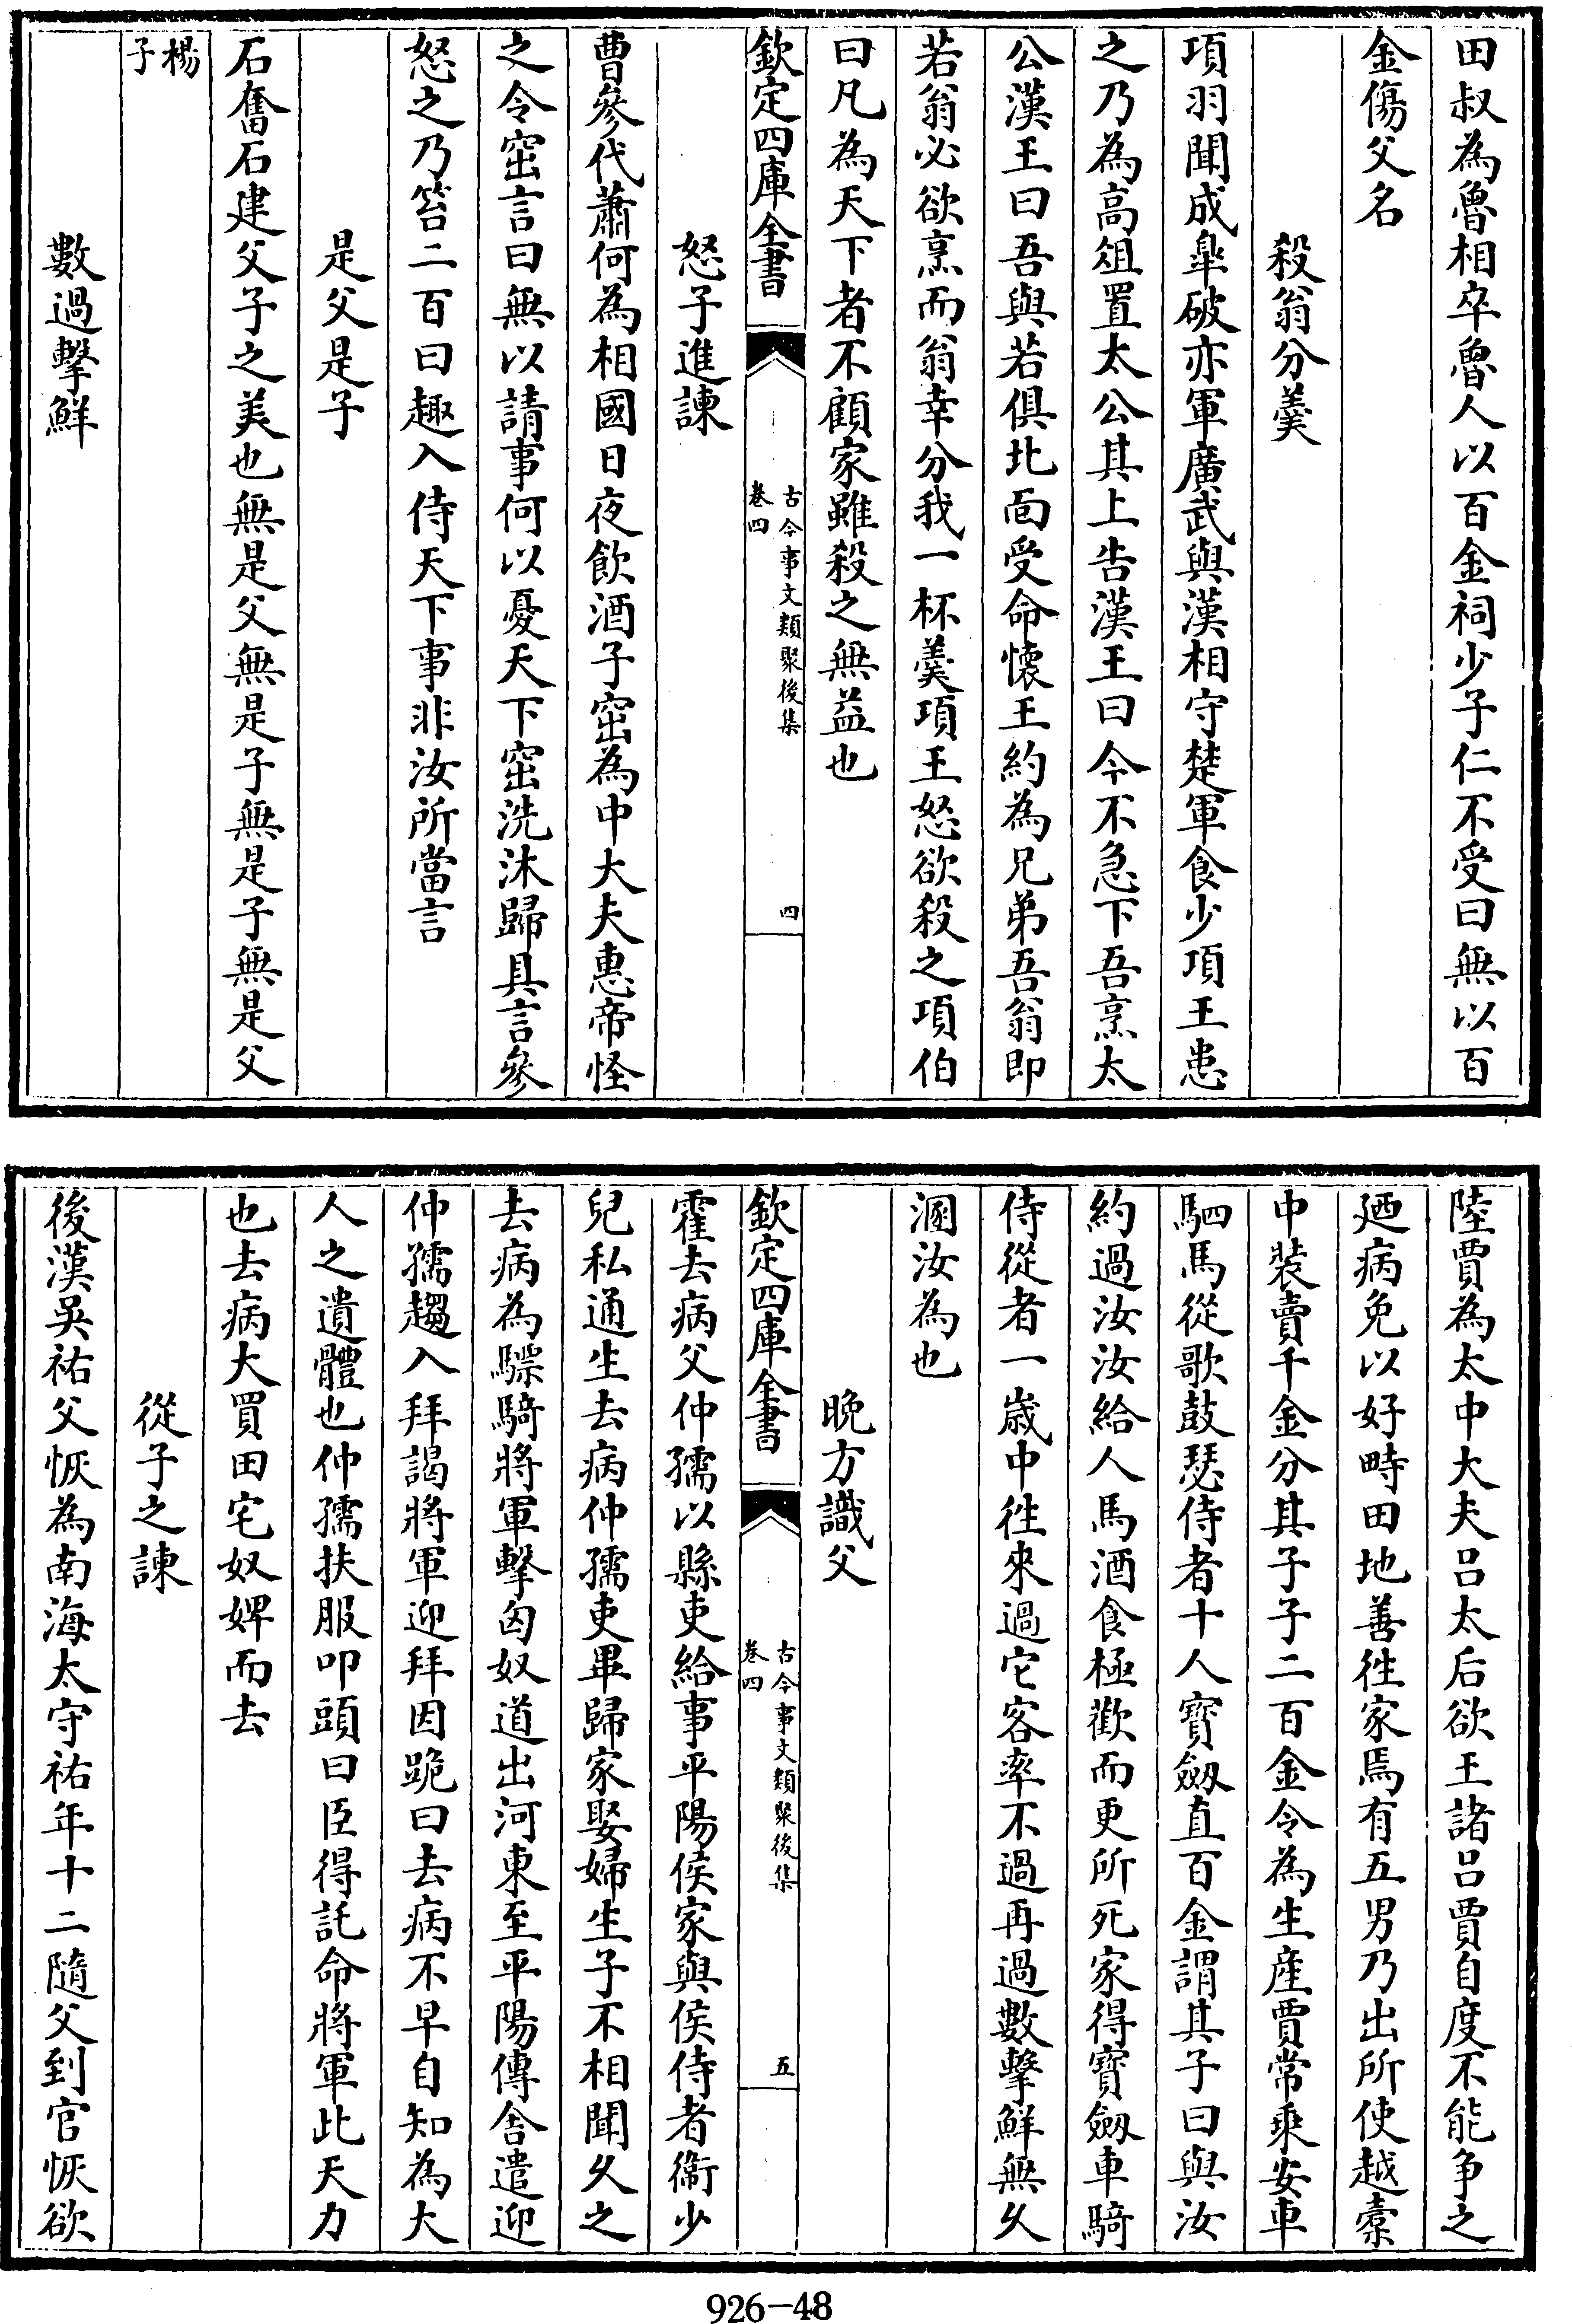 田叔為魯相卒魯人以百金祠少子仁不受曰無以百
金傷父名
殺翁分羹
項羽聞成臯破亦軍廣武與漢相守楚軍食少項王患
之乃為高俎置太公其上告漢王曰今不急下吾烹太
公漢王曰吾與若俱北面受命懷王約為兄弟吾翁即
若翁必欲烹而翁幸分我一杯羹項王怒欲殺之項伯
曰凡為天下者不顧家雖殺之無益也
欽定四庫全書
古今事文類聚後集
卷四
四
怒子進諫
曹參代蕭何為相國日夜飲酒子窋為中大夫惠帝怪
之令窋言曰無以請事何以憂天下窋洗沐歸具言參
怒之乃笞二百曰趣入侍天下事非汝所當言
是父是子
石奮石建父子之美也無是父無是子無是子無是父
楊
子
數過擊鮮
陸賈為太中大夫吕太后欲王諸吕賈自度不能争之
廼病免以好畤田地善徃家焉有五男乃出所使越橐
中裝賣千金分其子子二百金令為生産賈常乗安車
駟馬從歌鼓瑟侍者十人寳劔直百金謂其子曰與汝
約過汝汝給人馬酒食極歡而更所死家得寳劔車騎
侍從者一嵗中徃來過它客率不過再過數擊鮮無久
溷汝為也
晚方識父
欽定四庫全書
古今事文類聚後集
卷四
五
霍去病父仲孺以縣吏給事平陽侯家與侯侍者衞少
兒私通生去病仲孺吏畢歸家娶婦生子不相聞久之
去病為驃騎將軍擊匈奴道出河東至平陽傳舎遣迎
仲孺趨入拜謁將軍迎拜因跪曰去病不早自知為大
人之遺體也仲孺扶服叩頭曰臣得託命將軍此天力
也去病大買田宅奴婢而去
從子之諫
後漢吳祐父恢為南海太守祐年十二隨父到官恢欲
926-48